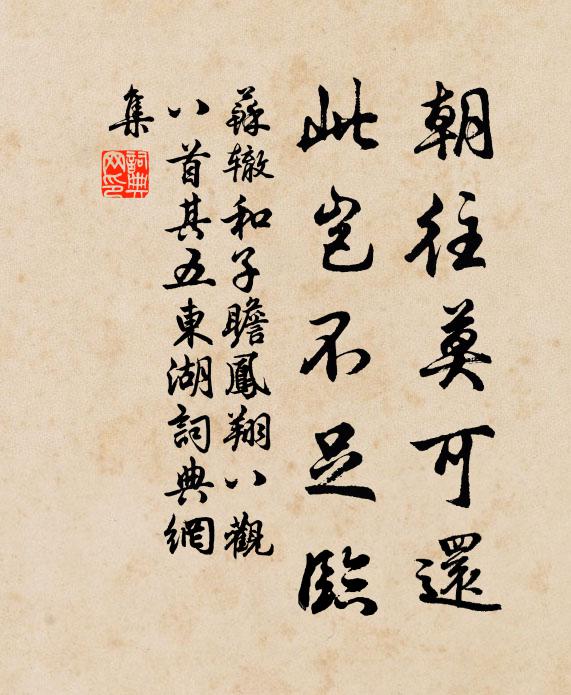 朝往莫可還
此豈不足臨
蘇辙和子瞻鳳翔八觀
八首其五東湖詞典網
集
詞典
网印